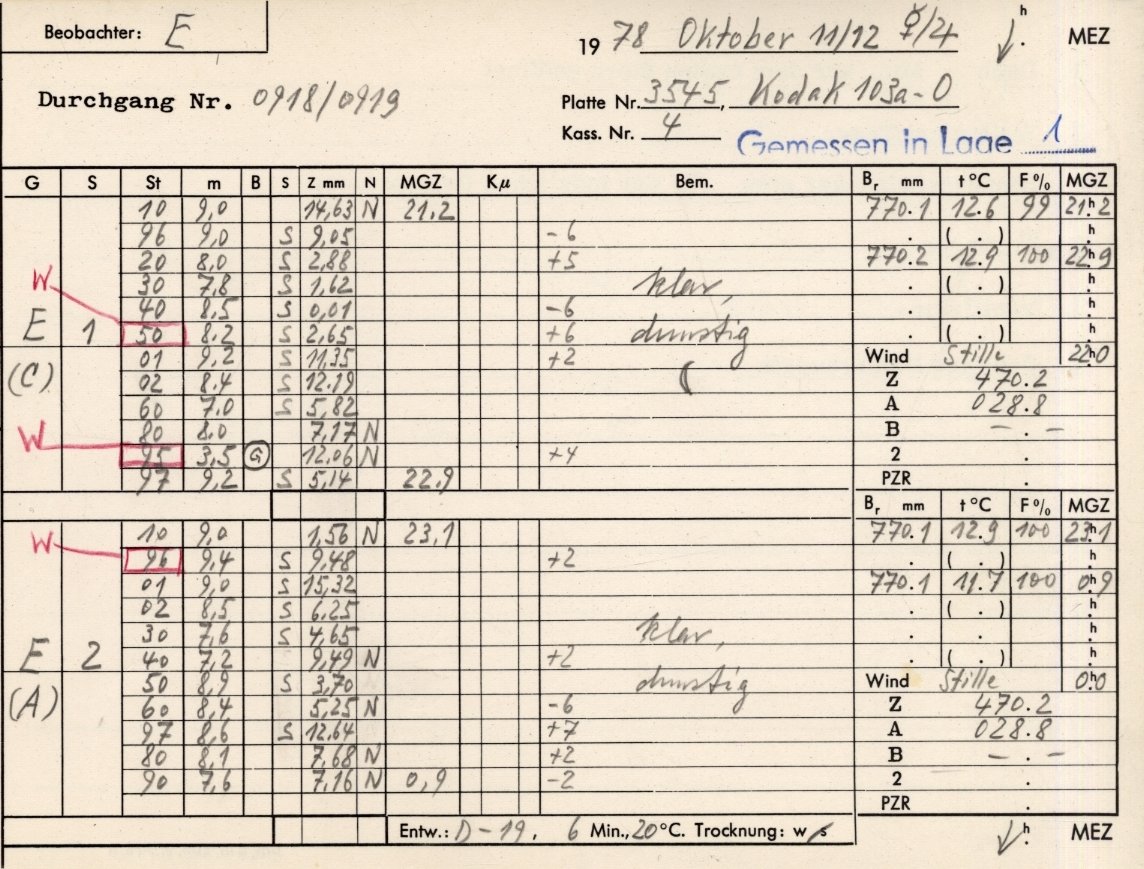 Beobachter: E
19 78 Oktober 11/12 ☿/♃ h . MEZ
Durchgang Nr. 0918/0919
Platte Nr. 3545, Kodak 103a-O
Kass. Nr. 4
Gemessen in Lage 1
G S St m B S Z mm N MGZ Kμ Bem. Br mm t °C F % MGZ
10 9,0 14,63 N 21,2 770.1 12.6 99 21h2
96 9,0 S 9,05 -6 . ( . ) h
20 8,0 S 2,88 +5 770.2 12.9 100 22h9
W 30 7,8 S 1,62 klar, . ( . ) h
40 8,5 S 0,01 -6 . . h
E 1 50 8,2 S 2,65 +6 dunstig . ( . ) h
01 9,2 S 11,35 +2 Wind Stille 22h0
(C) 02 8.4 S 12.19 ( Z 470.2
60 7,0 S 5,82 A 028.8
W 80 8,0 7,17 N B - . -
95 3,5 G 12,06 N +4 2 .
97 9,2 S 5,14 22,9 PZR .
Br mm t °C F % MGZ
W 10 9,0 1,56 N 23,1 770.1 12.9 100 23h1
96 9,4 S 9,48 +2 . ( . ) h
01 9,0 S 15,32 770.1 11.7 100 0h9
02 8,5 S 6,25 . ( . ) h
30 7,6 S 4,65 klar, . . h
E 2 40 7,2 9,49 N +2 . ( . ) h
50 8,9 S 3,70 dunstig Wind Stille 0h0
(A) 60 8,4 5,25 N -6 Z 470.2
97 8,6 S 12,64 +7 A 028.8
80 8,1 7,68 N +2 B - . -
90 7,6 7,16 N 0,9 -2 2 .
PZR .
Entw.: D-19, 6 Min., 20 °C. Trocknung: w/s h . MEZ